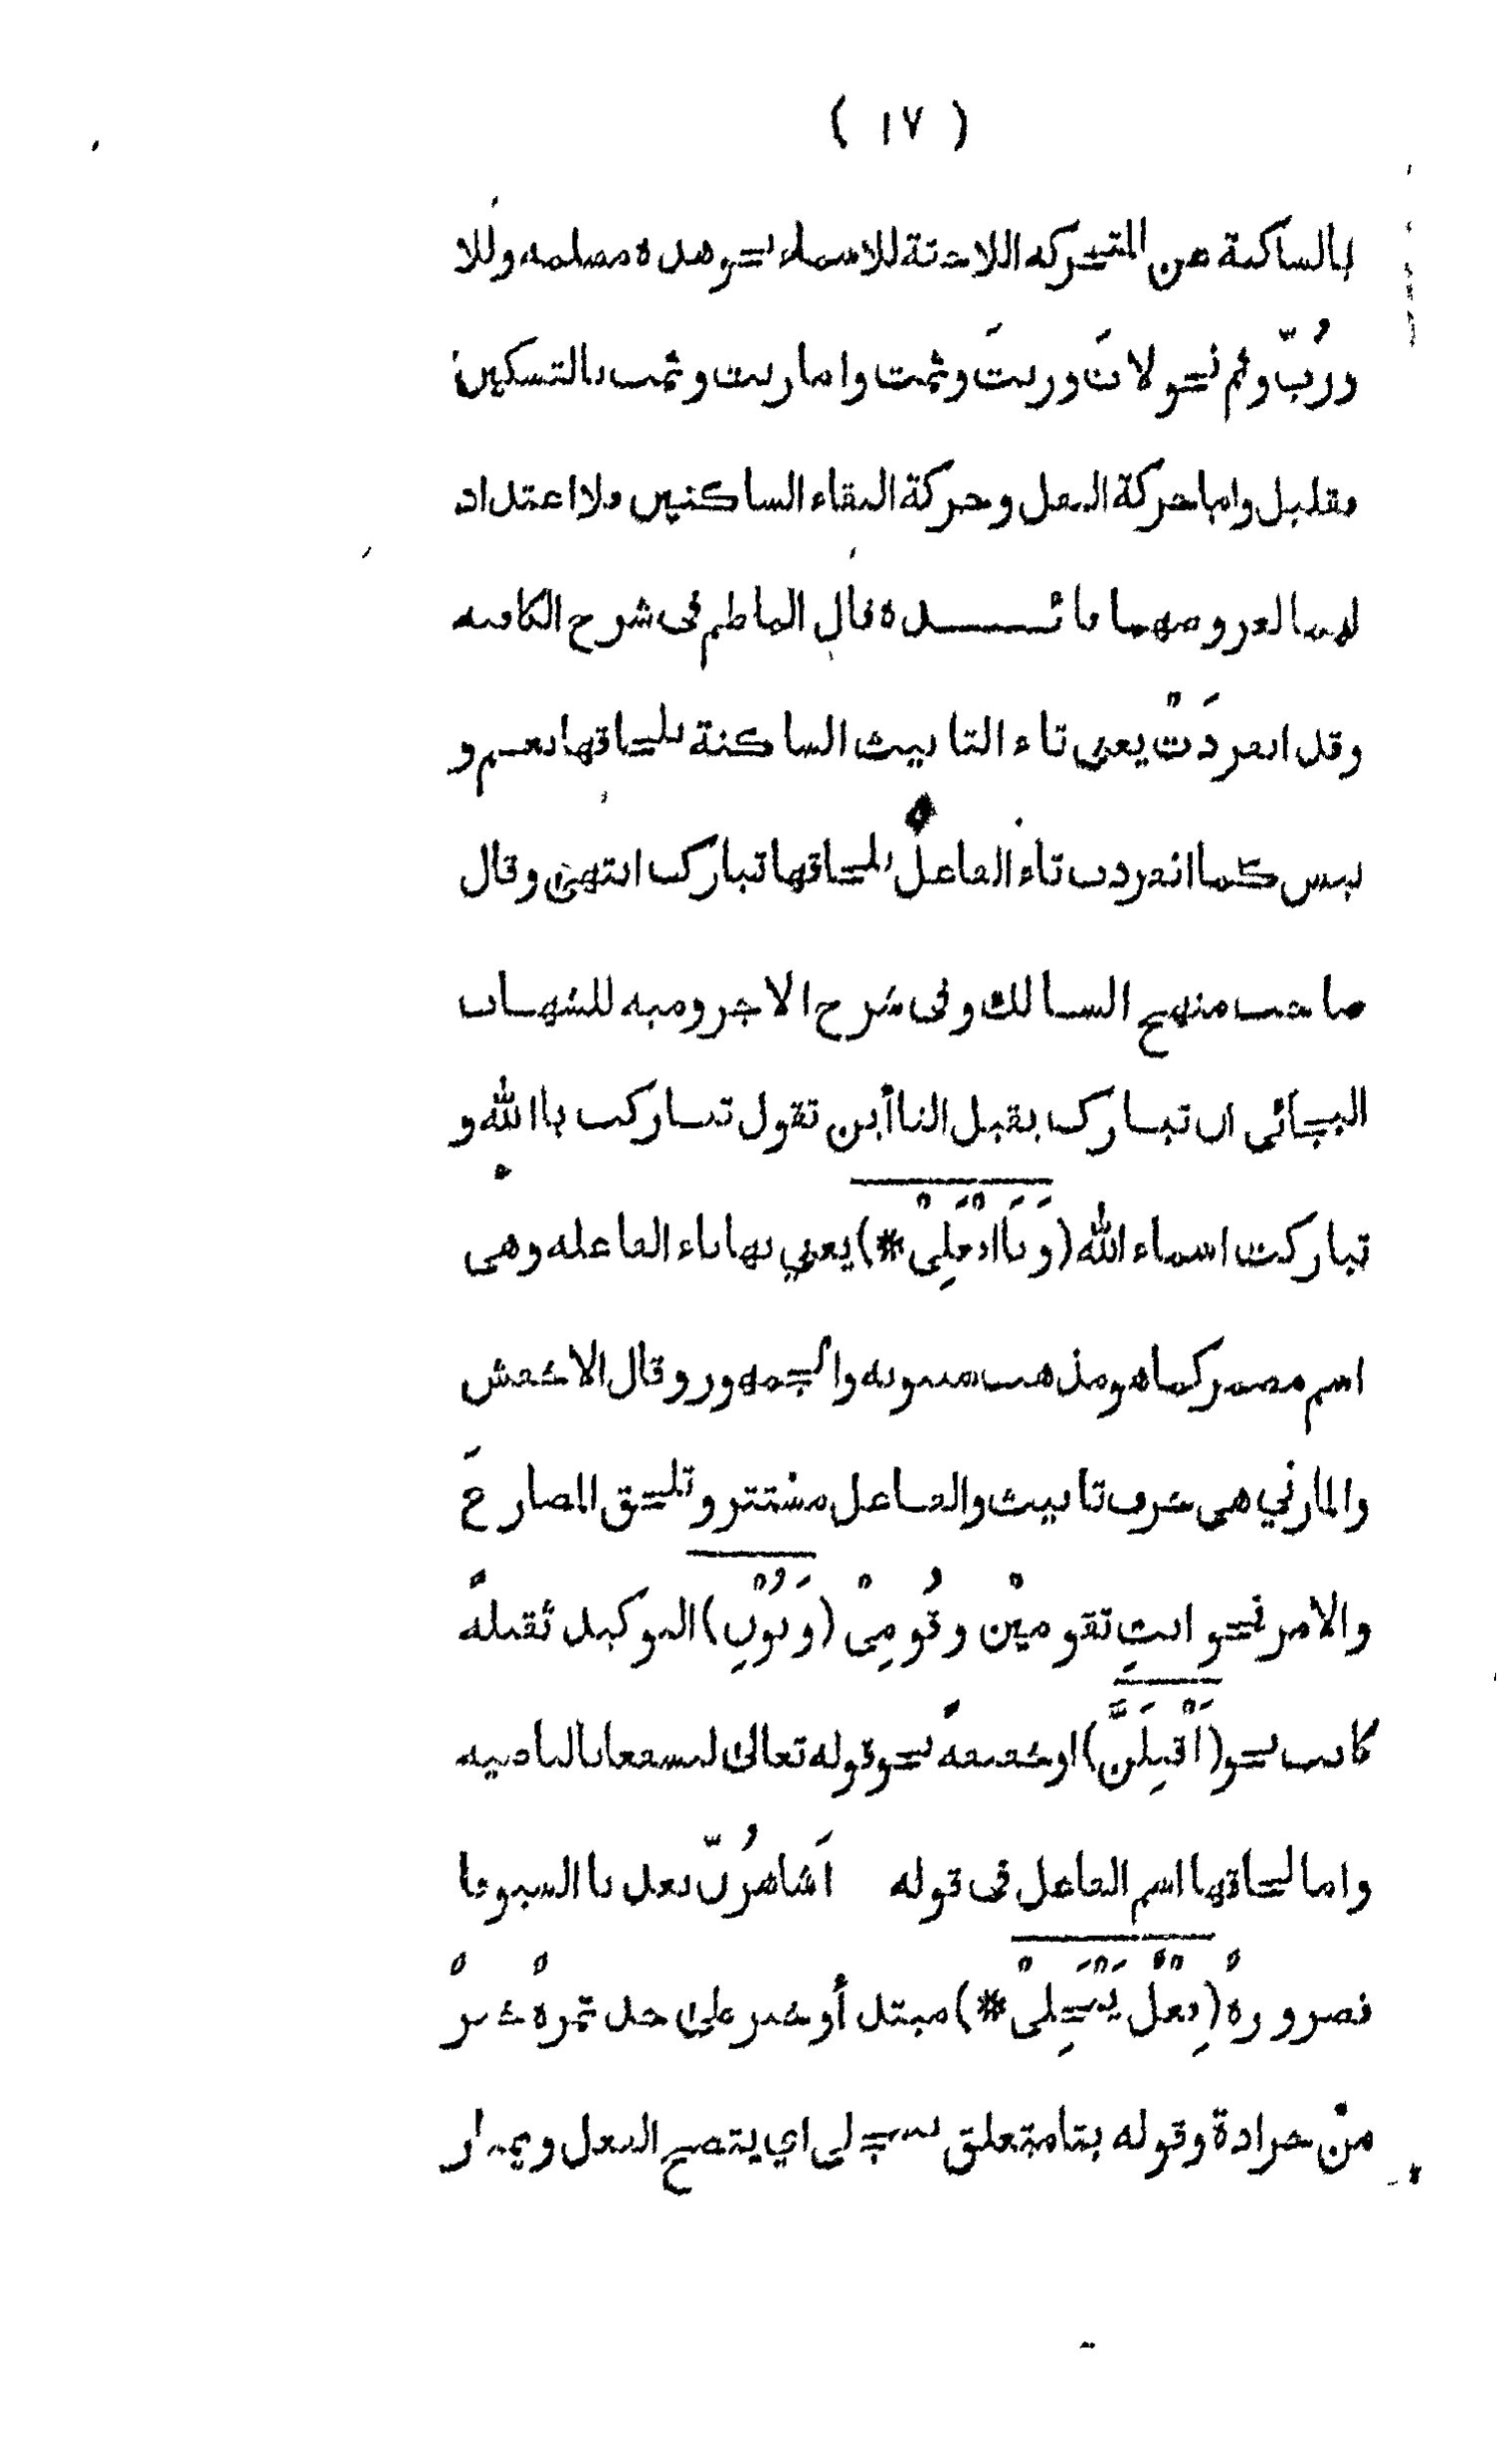 ( ١٧ )
بالساكنة عن المتحركة اللاحقة للاسماء نحو هذه مسلمة وللا
ورُبّ وثم نحو لاتَ وربتَ وثمت واما ربت وثمت بالتسكين
فقليل واما حركة النقل وحركة التقاء الساكنين فلا اعتداد
بهما لعروضهما فائدة قال الناظم فى شرح الكافيه
وقد انفردَتْ يعنى تاء التانيث الساكنة بلحاقها نعم و
بئس كما انفردت تاء الفاعل بلحاقها تبارك انتهى وقال
صاحب منهج السالك وفى شرح الاجروميه للشهاب
البجائى ان تبارك يقبل التاأين تقول تباركت يا الله و
تباركت اسماء الله (وَيَا افْعَلِىْ *) يعني بها ياء الفاعله وهى
اسم مضمر كما هو مذهب سيبويه والجمهور وقال الاخفش
والمازني هى حرف تانيث والفاعل مستتر وتلحق المضارعَ
والامر نحو انتِ تقومين وقُومِىْ (وَنُوْنِ) التوكيد ثقيلةً
كانت نحو (اَقْبِلَنَّ) او خفيفةً نحو قوله تعالى لنسفعا بالناصيه
واما لحاقها اسم الفاعل فى قوله اَشاهرُنّ بعد نا السيوفا
فضرورةٌ (فِعْلٌ يَنْجَلِىْ *) مبتدأ وخبر على حد تمرةٌ خيرٌ
منْ جرادة وقوله بتا متعلق بينجلى اي يتضح الفعل ويمتاز